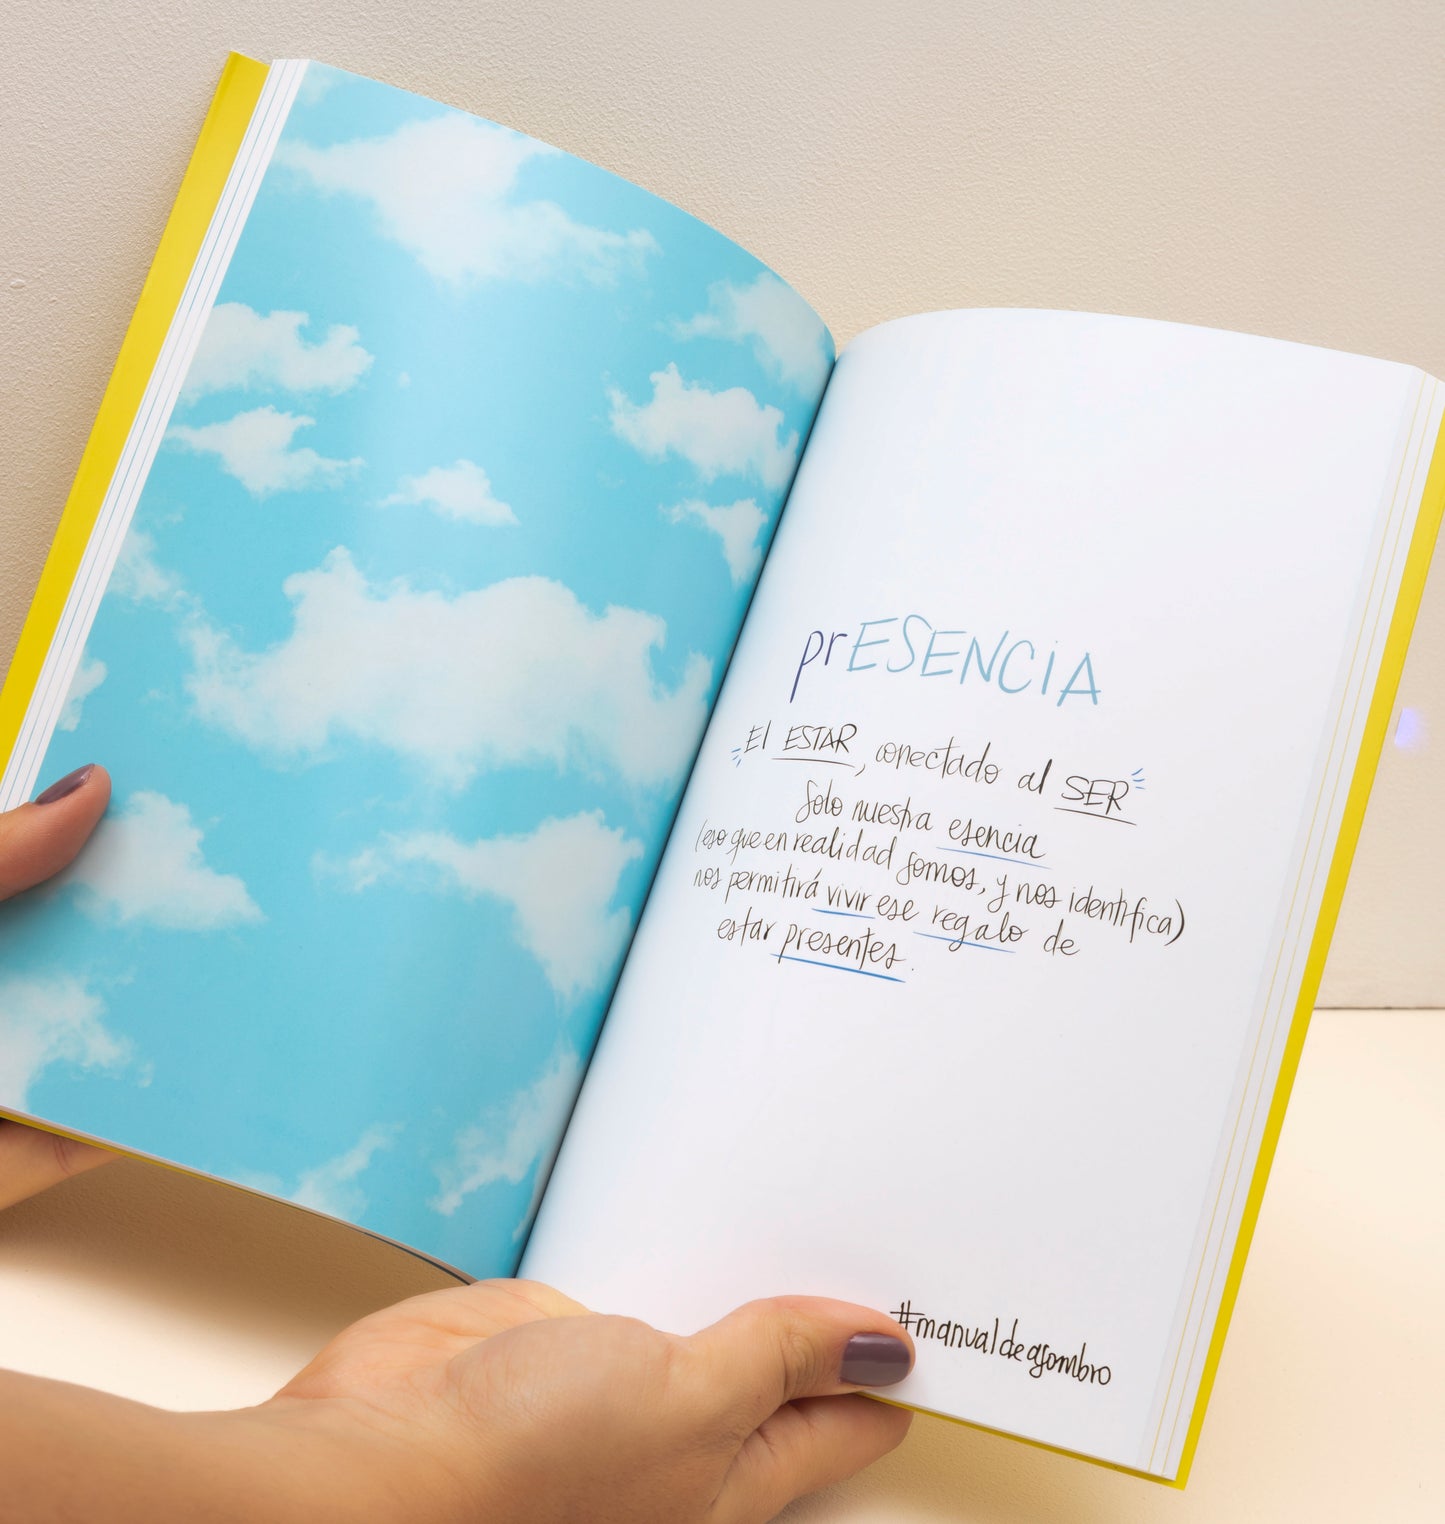 prESENCiA
El ESTAR, conectado al SER
Solo nuestra esencia
(eso que en realidad somos, y nos identifica)
nos permitirá vivir ese regalo de
estar presentes.
#manualdeasombro